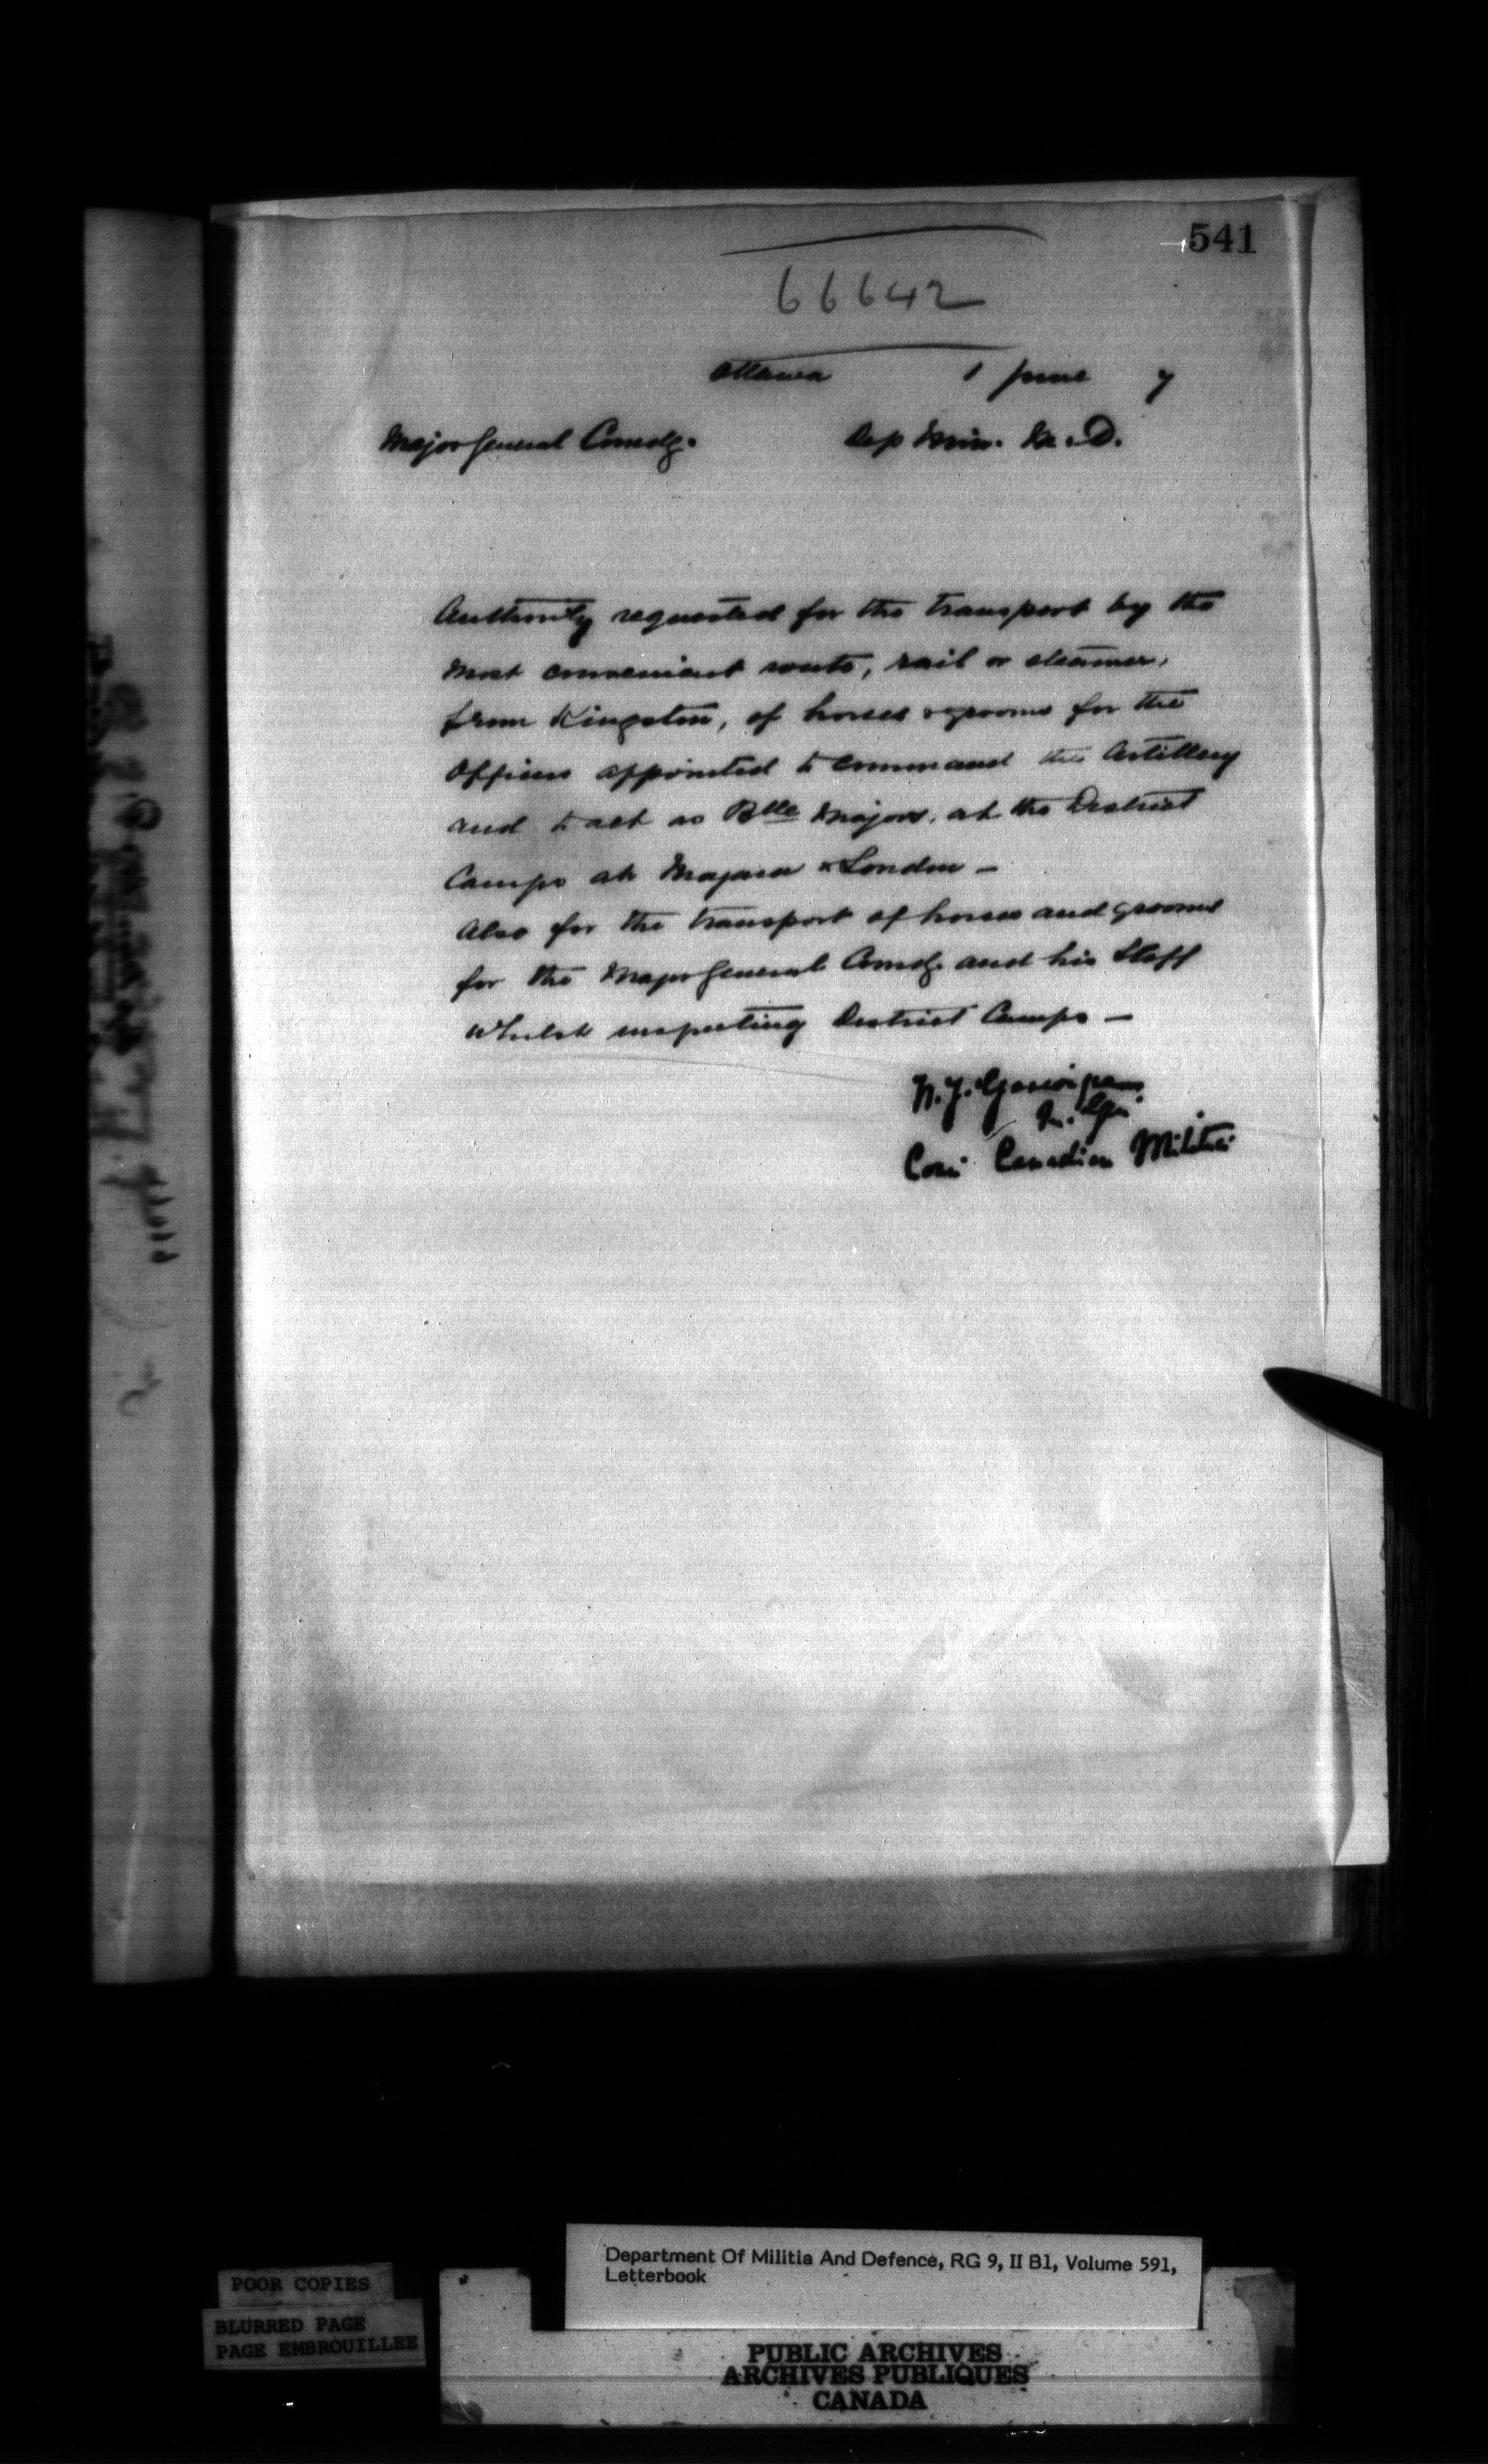 541
66642
Ottawa 1 June 7
Major General Comdg. Dep Min. M. D.
Authority requested for the transport by the
most convenient route, rail or steamer,
from Kingston, of horses & grooms for the
Officers appointed to command the Artillery
and to act as Bde Majors, at the District
Camps at Niagara & London —
Also for the transport of horses and grooms
for the Major General Comdg. and his Staff
whilst inspecting District Camps —
M. Gen
Canadian Militia
Department Of Militia And Defence, RG 9, II B1, Volume 591,
Letterbook
POOR COPIES
BLURRED PAGE
PAGE EMBROUILLEE
PUBLIC ARCHIVES
ARCHIVES PUBLIQUES
CANADA